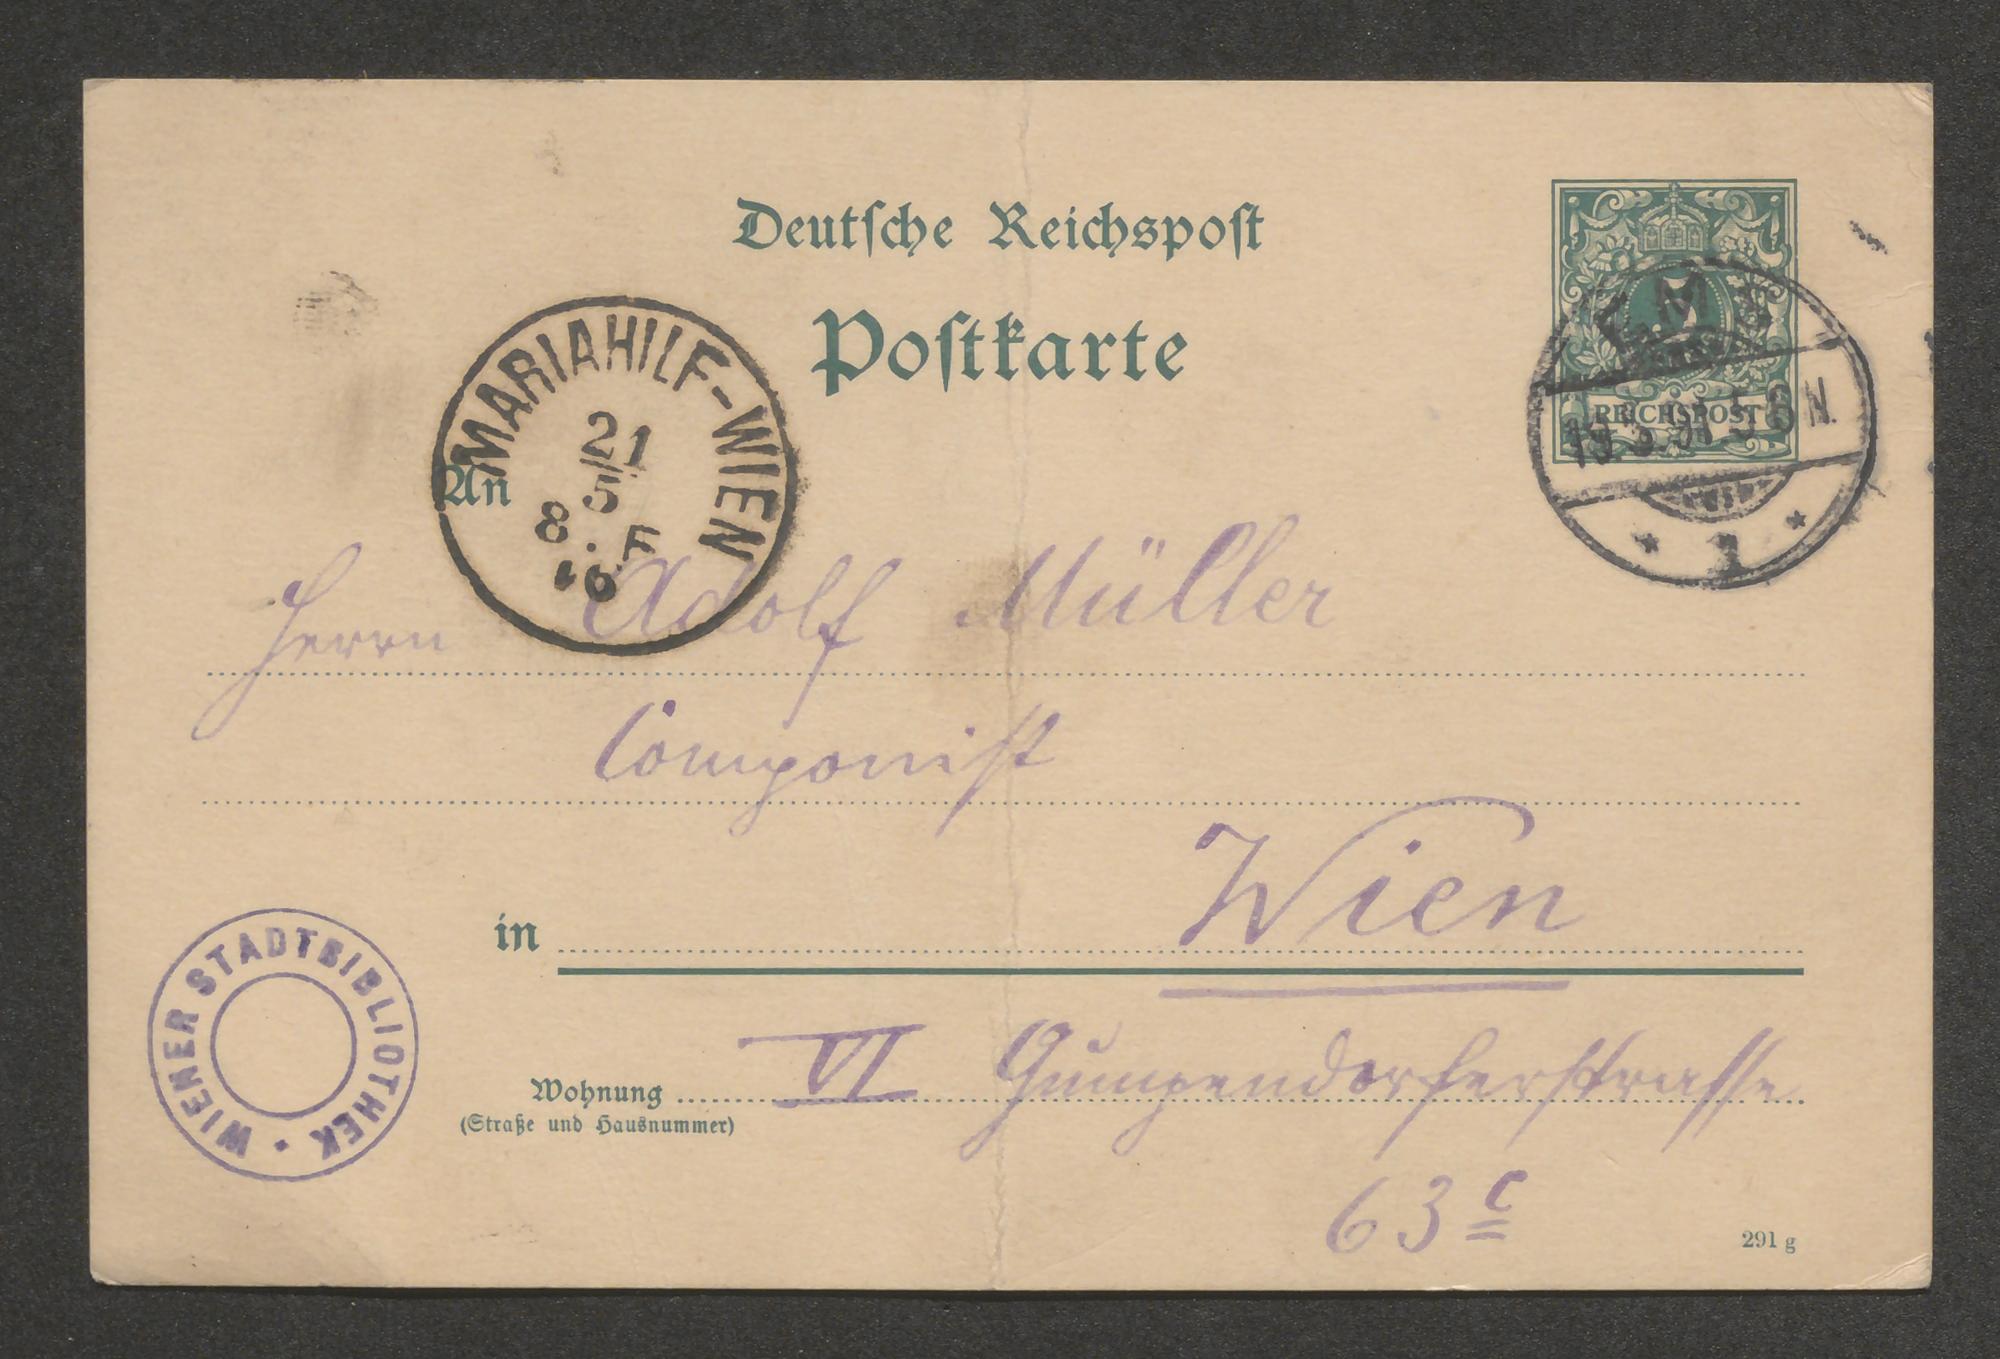 Deutsche Reichspost
Postkarte
REICHSPOST
5 6 N.
1
MARIAHILF-WIEN
21
5
8. F
An
Herrn Adolf Müller
Componist
in Wien
Wohnung VI Gumpendorferstrasse
(Straße und Hausnummer)
63 c
291 g
WIENER STADTBIBLIOTHEK